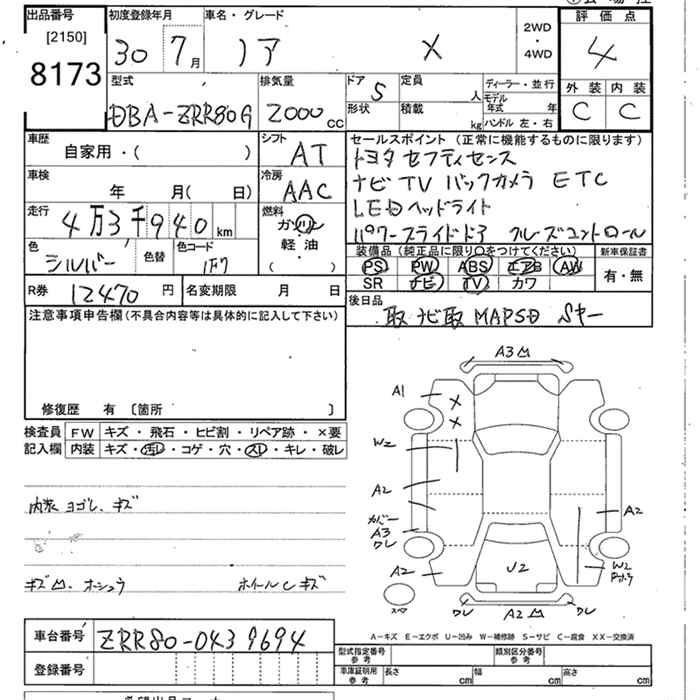 出品番号
[2150]
8173
初度登録年月
30 7月
車名・グレード
ノア X
2WD
・
4WD
評 価 点
4
外 装 内 装
C C
型式
DBA-ZRR80G
排気量
2000 CC
ドア 5
形状
定員 人
積載 kg
ディーラー・並行
モデル年式 年
ハンドル 左・右
車歴
自家用・( )
シフト
AT
車検
年 月( 日)
冷房
AAC
走行
4万3千940 km
燃料
ガソリン
軽 油
( )
色
シルバー
色替
色コード
1F7
R券 12470 円
名変期限 月 日
セールスポイント (正常に機能するものに限ります)
トヨタ セフティセンス
ナビ TV バックカメラ ETC
LEDヘッドライト
パワースライドドア クルーズコントロール
装備品(純正品に限り○をつけてください)
PS PW ABS エアB AW
SR ナビ TV カワ
新車保証書
有・無
後日品
取 ナビ取 MAPSD Sキー
注意事項申告欄(不具合内容等は具体的に記入して下さい)
修復歴 有 〔箇所 〕
検査員記入欄
FW キズ ・ 飛石 ・ ヒビ割 ・ リペア跡 ・ ×要
内装 キズ・汚レ・コゲ・穴・スレ・キレ・破レ
内装 ヨゴレ、キズ
ホイールCキズ
A3
A1
X
X
W2
A2
カバー
A3
ワレ
A2
スペア
U2
A2
W2
ワレ A2 ワレ
A-キズ E-エクボ U-凹み W-補修跡 S-サビ C-腐食 XX-交換済
車台番号 ZRR80-0439694
登録番号
型式指定番号
参 考
類別区分番号
参 考
車庫証明用
参 考
長さ cm
幅 cm
高さ cm